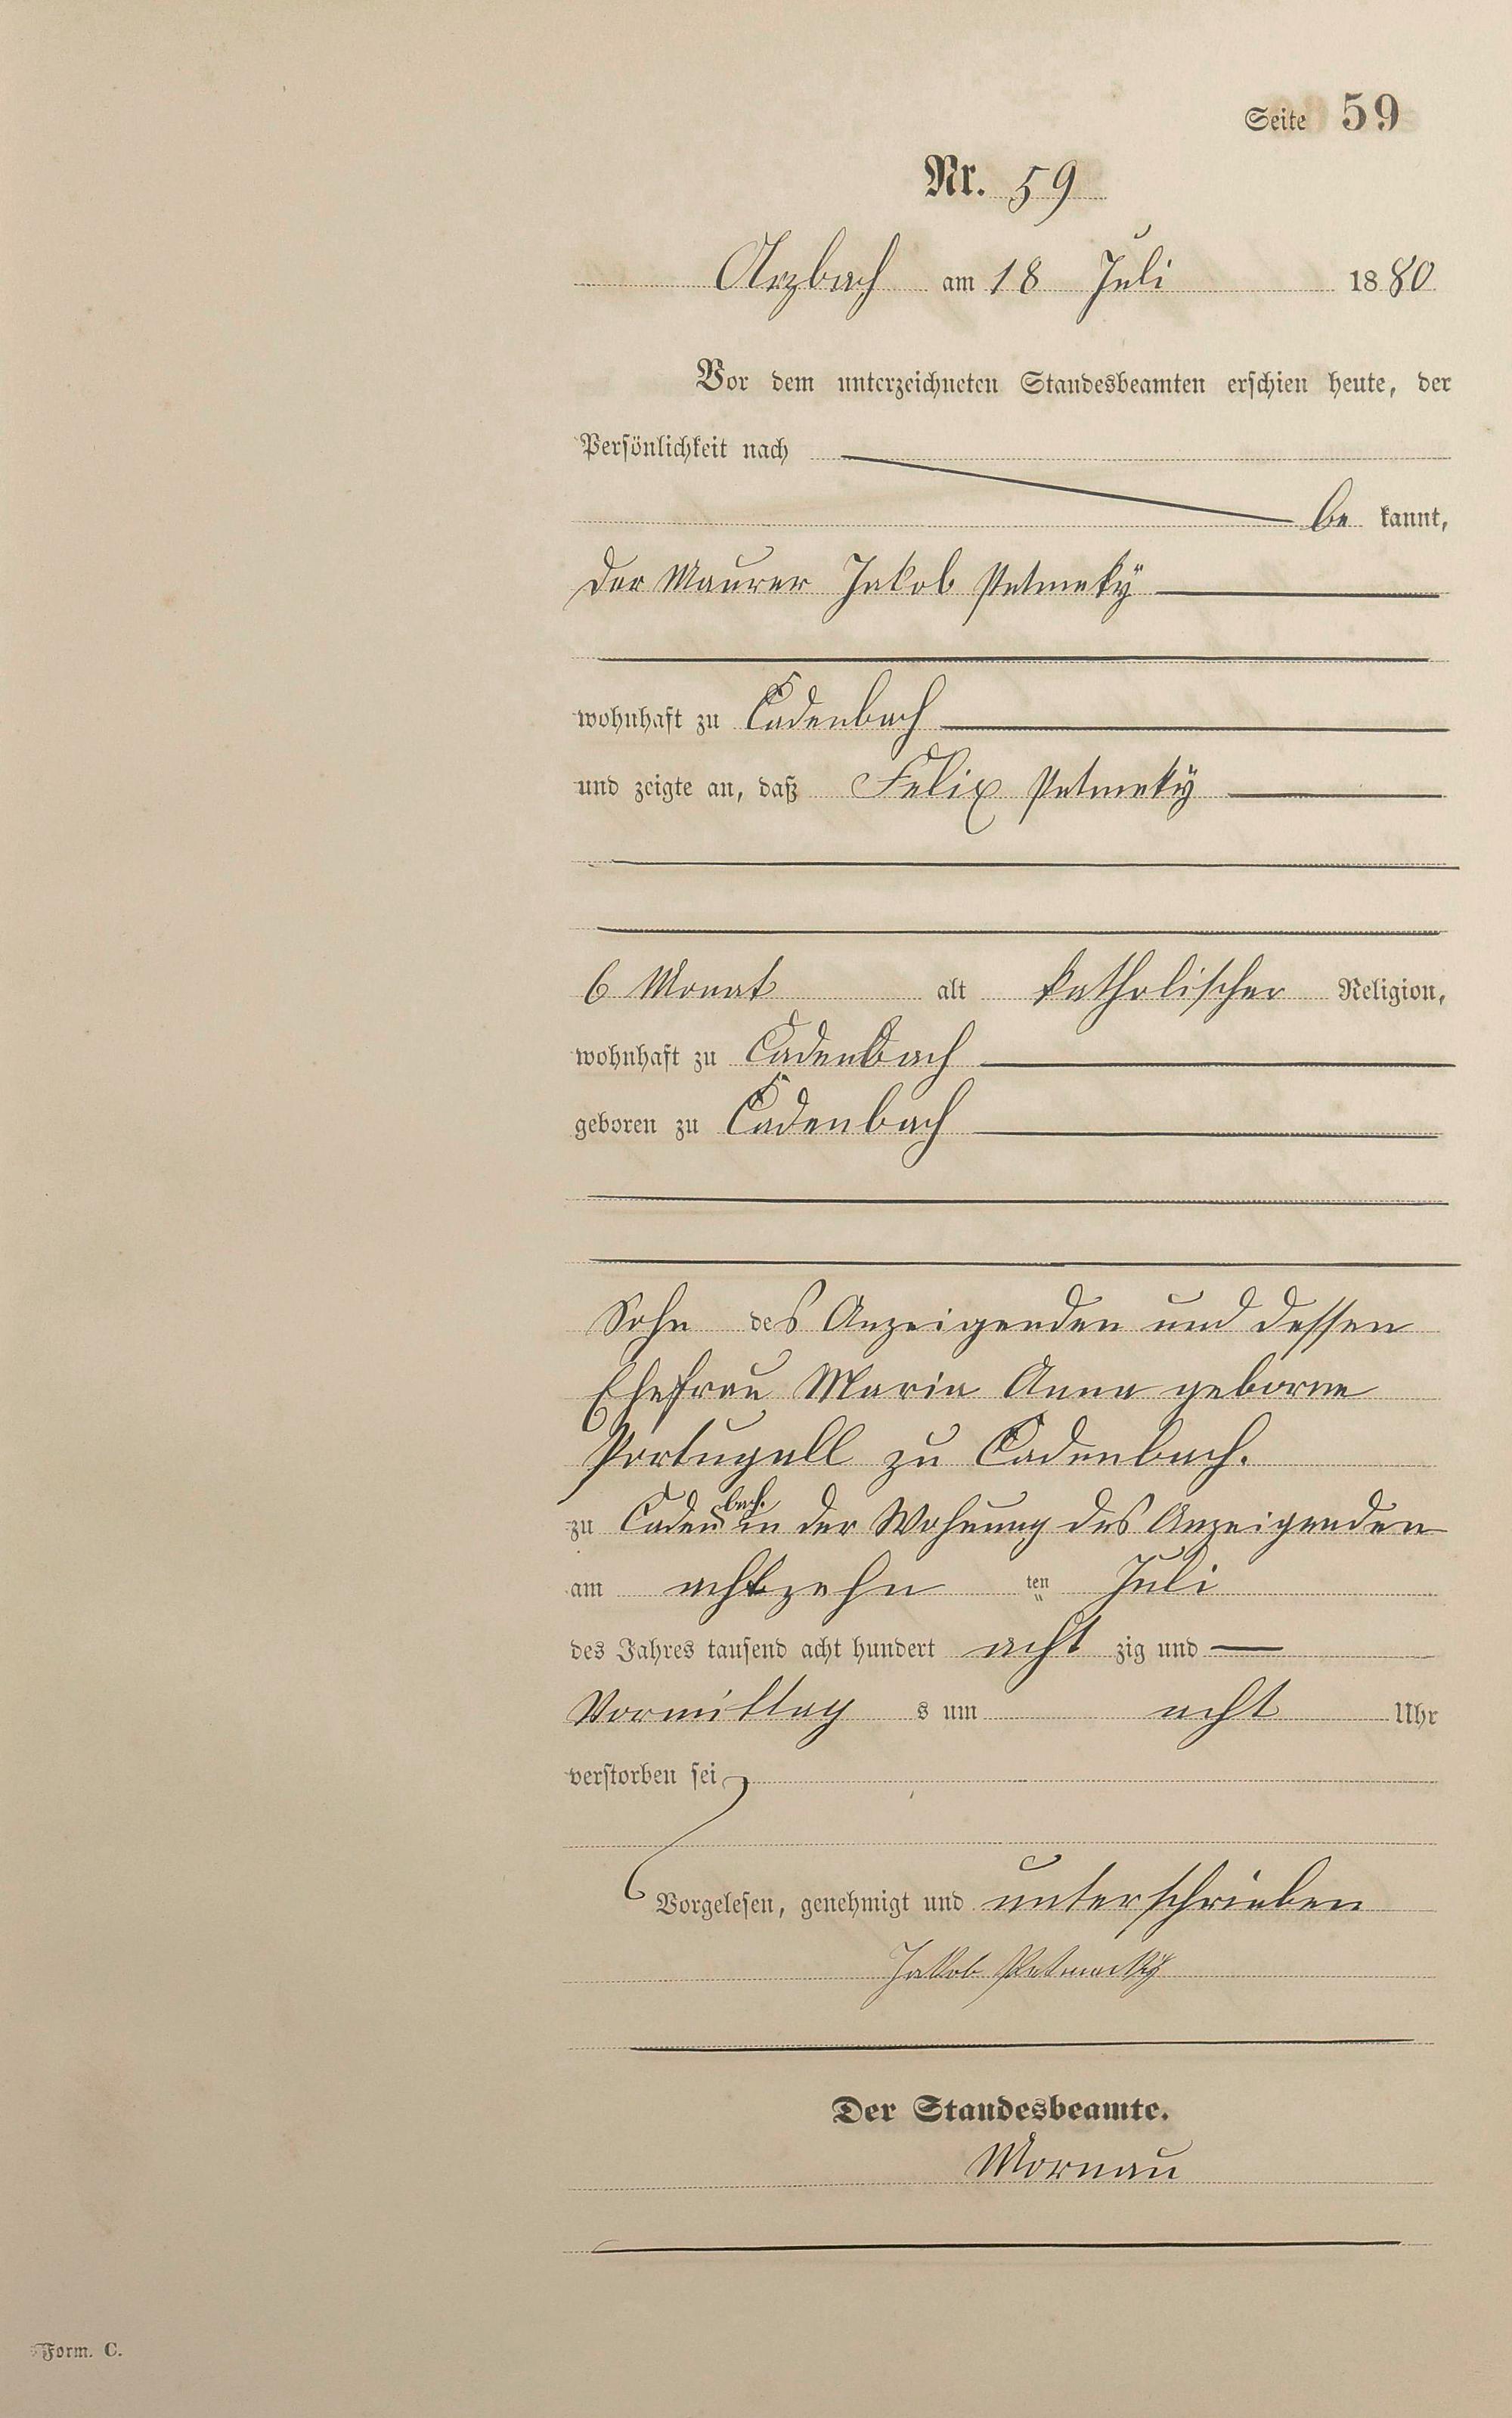 Seite 59
Nr. 59
Arzbach am 18 Juli 1880
Vor dem unterzeichneten Standesbeamten erschien heute, der
Persönlichkeit nach
be kannt,
der Maurer Jakob Petmeky
wohnhaft zu Cadenbach
und zeigte an, daß Felix Petmeky
6 Monat alt katholischer Religion,
wohnhaft zu Cadenbach
geboren zu Cadenbach
Sohn des Anzeigenden und dessen
Ehefrau Maria Anna geborne
Portugall zu Cadenbach.
zu Cadenbach. in der Wohnung des Anzeigenden
am achtzehn ten Juli
des Jahres tausend acht hundert acht zig und
Vormittag s um acht Uhr
verstorben sei
Vorgelesen, genehmigt und unterschrieben
Jakob Petmecky
Der Standesbeamte.
Mornau
Form. C.